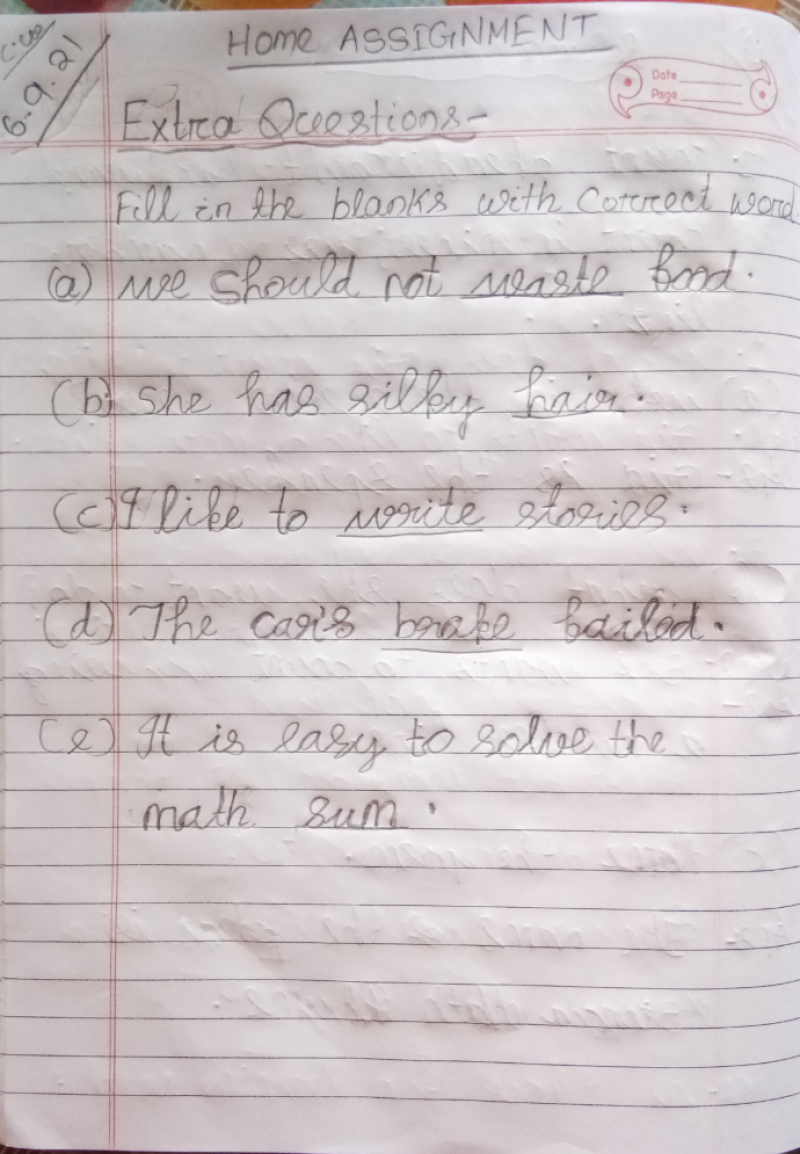 C.W
6.9.21
Home ASSIGNMENT
Date
Page
Extra Questions-
Fill in the blanks with Correct word
(a) we should not waste food.
(b) She has silky hair.
(c) I like to write stories.
(d) The car's brake failed.
(e) It is easy to solve the
math sum.